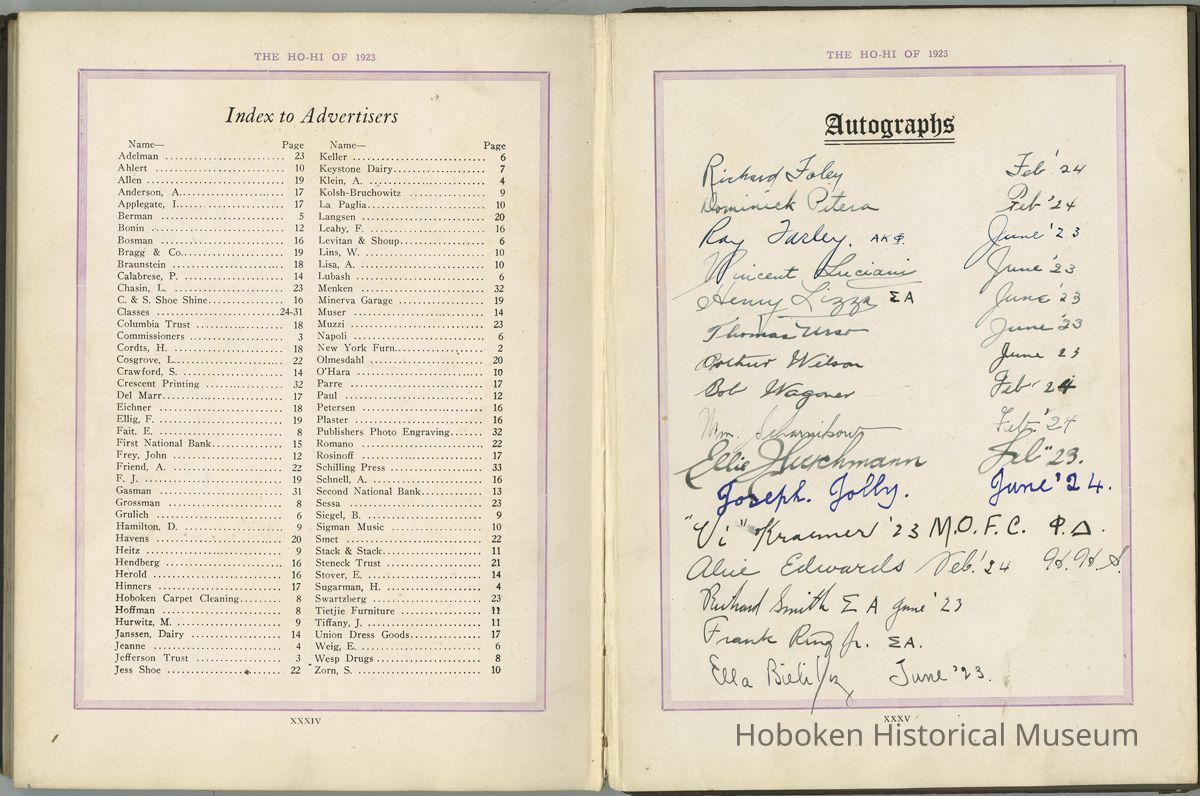 THE HO-HI OF 1923
Index to Advertisers
Name— Page
Adelman 23
Ahlert 10
Allen 19
Anderson, A. 17
Applegate, I. 17
Berman 5
Bonin 12
Bosman 16
Bragg & Co. 19
Braunstein 18
Calabrese, P. 14
Chasin, L. 23
C. & S. Shoe Shine 16
Classes 24-31
Columbia Trust 18
Commissioners 3
Cordts, H. 18
Cosgrove, L. 22
Crawford, S. 14
Crescent Printing 32
Del Marr 17
Eichner 18
Ellig, F. 19
Fait, E. 8
First National Bank 15
Frey, John 12
Friend, A. 22
F. J. 19
Gasman 31
Grossman 8
Grulich 6
Hamilton, D. 9
Havens 20
Heitz 9
Hendberg 16
Herold 16
Hinners 17
Hoboken Carpet Cleaning 8
Hoffman 8
Hurwitz, M. 9
Janssen, Dairy 14
Jeanne 4
Jefferson Trust 3
Jess Shoe 22
Name— Page
Keller 6
Keystone Dairy 7
Klein, A. 4
Kolsh-Bruchowitz 9
La Paglia 10
Langsen 20
Leahy, F. 16
Levitan & Shoup 6
Lins, W. 10
Lisa, A. 10
Lubash 6
Menken 32
Minerva Garage 19
Muser 14
Muzzi 23
Napoli 6
New York Furn. 2
Olmesdahl 20
O'Hara 10
Parre 17
Paul 12
Petersen 16
Plaster 16
Publishers Photo Engraving 32
Romano 22
Rosinoff 17
Schilling Press 33
Schnell, A. 16
Second National Bank 13
Sessa 23
Siegel, B. 9
Sigman Music 10
Smet 22
Stack & Stack 11
Steneck Trust 21
Stover, E. 14
Sugarman, H. 4
Swartzberg 23
Tietjie Furniture 11
Tiffany, J. 11
Union Dress Goods 17
Weig, E. 6
Wesp Drugs 8
Zorn, S. 10
XXXIV
THE HO-HI OF 1923
Autographs
Richard Foley Feb '24
Dominick Pitera Feb '24
Ray Farley. AKΦ. June '23
Vincent Luciani June '23
Henry Lizza ΣA June '23
Thomas Urso June '23
Arthur Wilson June 23
Bob Wagoner Feb 24
Wm. Feb. '24
Ellie Hirschmann Feb '23.
Joseph. Jolly. June '24.
"Vi" Kraemer '23 M.O.F.C. Φ.Δ.
Alice Edwards Feb. '24 H.H.S.
Richard Smith Σ A June '23
Frank Ring Jr. ΣA.
Ella June '23.
XXXV
Hoboken Historical Museum